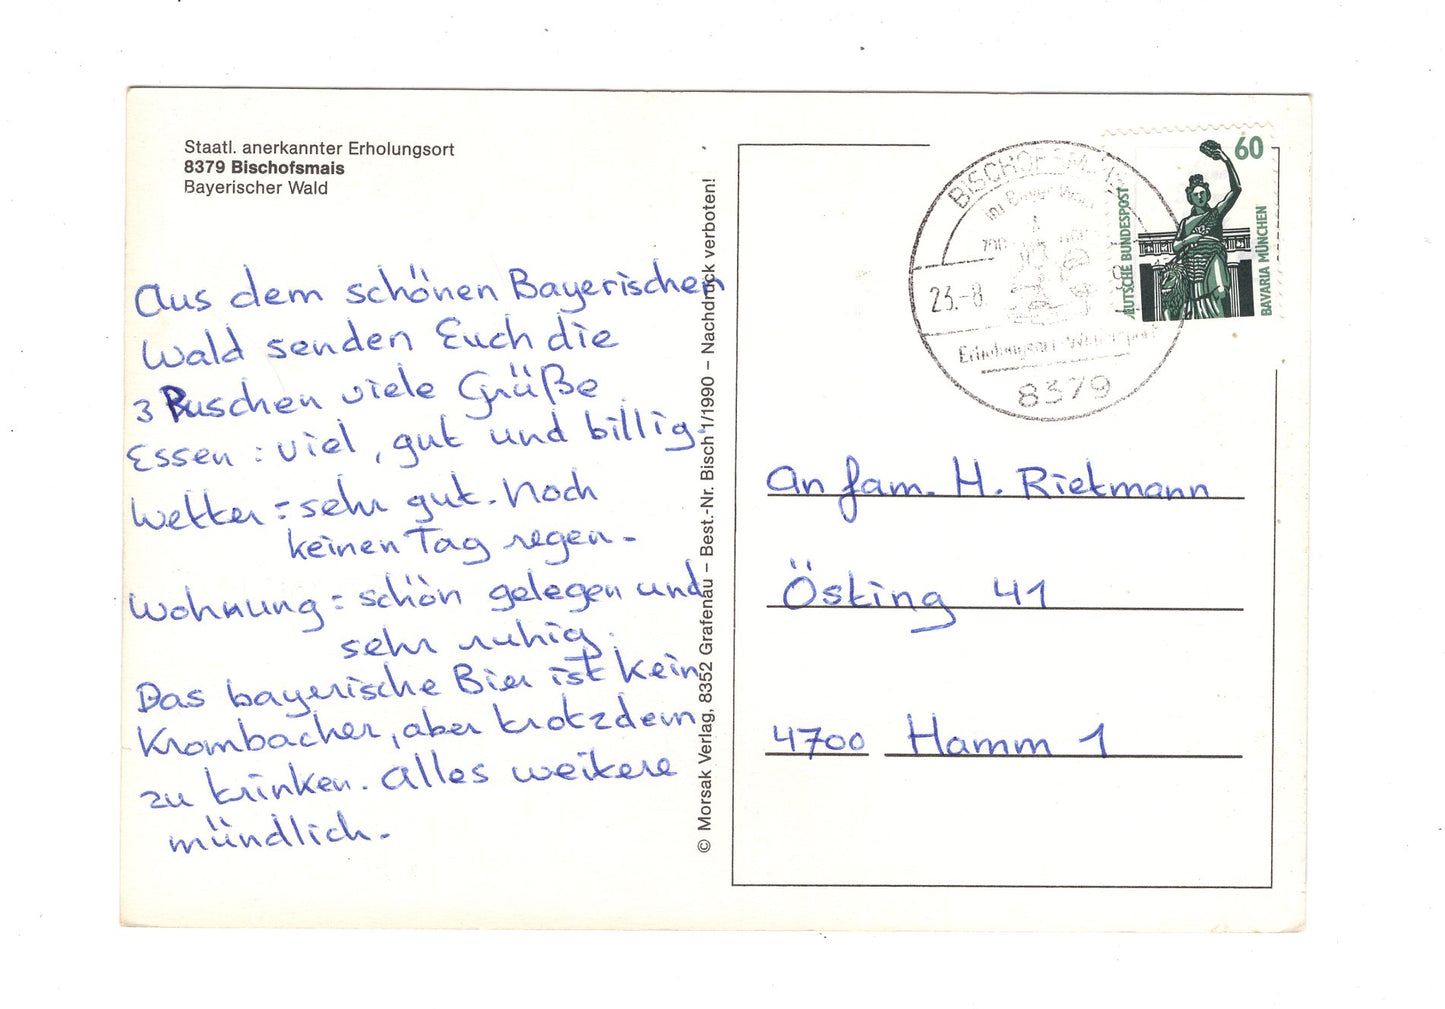 Staatl. anerkannter Erholungsort
8379 Bischofsmais
Bayerischer Wald
Aus dem schönen Bayerischen
Wald senden Euch die
3 Puschen viele Grüße
Essen : viel, gut und billig.
Wetter = sehr gut. Noch
keinen Tag regen.
Wohnung = schön gelegen und
sehr ruhig.
Das bayerische Bier ist kein
Krombacher, aber trotzdem
zu trinken. Alles weitere
mündlich.
© Morsak Verlag, 8352 Grafenau – Best.-Nr. Bisch 1/1990 – Nachdruck verboten!
BISCHOFSMAIS
im Bayer Wald
23.-8
Erholungsort
8379
60
DEUTSCHE BUNDESPOST
BAVARIA MÜNCHEN
An Fam. H. Rietmann
Östing 41
4700 Hamm 1